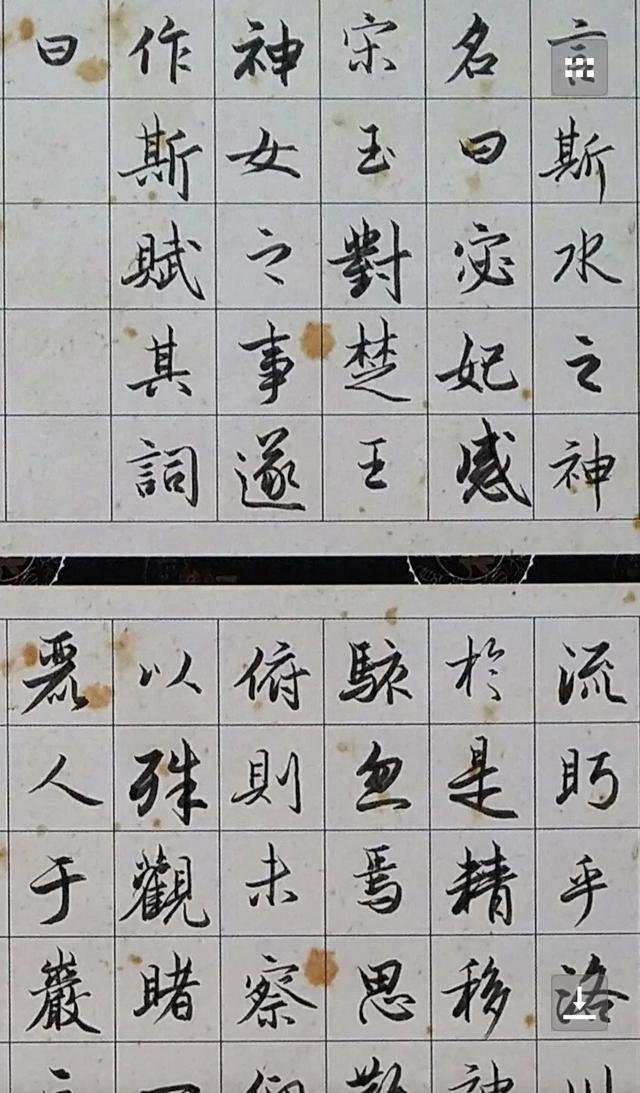 言斯水之神
名曰宓妃感
宋玉對楚王
神女之事遂
作斯賦其詞
曰
流眄乎洛川
於是精移神
駭忽焉思散
俯則未察仰
以殊觀睹一
麗人于巖之